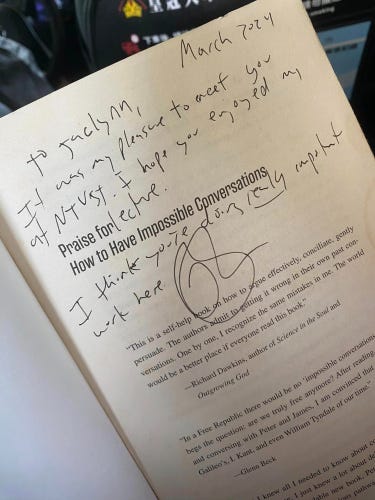 March 2024
To Jaclynn,
It was my pleasure to meet you
at NTUST. I hope you enjoyed my
lecture.
Praise for
How to Have Impossible Conversations
I think you're doing really important
work here.
"This is a self-help book on how to argue effectively, conciliate, gently
persuade. The authors admit to getting it wrong in their own past con-
versations. One by one, I recognize the same mistakes in me. The world
would be a better place if everyone read this book."
—Richard Dawkins, author of Science in the Soul and
Outgrowing God
"In a Free Republic there would be no 'impossible conversations
begs the question: are we truly free anymore? After reading
and conversing with Peter and James, I am convinced that
Galileo's, I. Kant, and even William Tyndale of our time."
—Glenn Beck
knew all I needed to know about co
I just knew a lot about de
new book, Pet
pathway